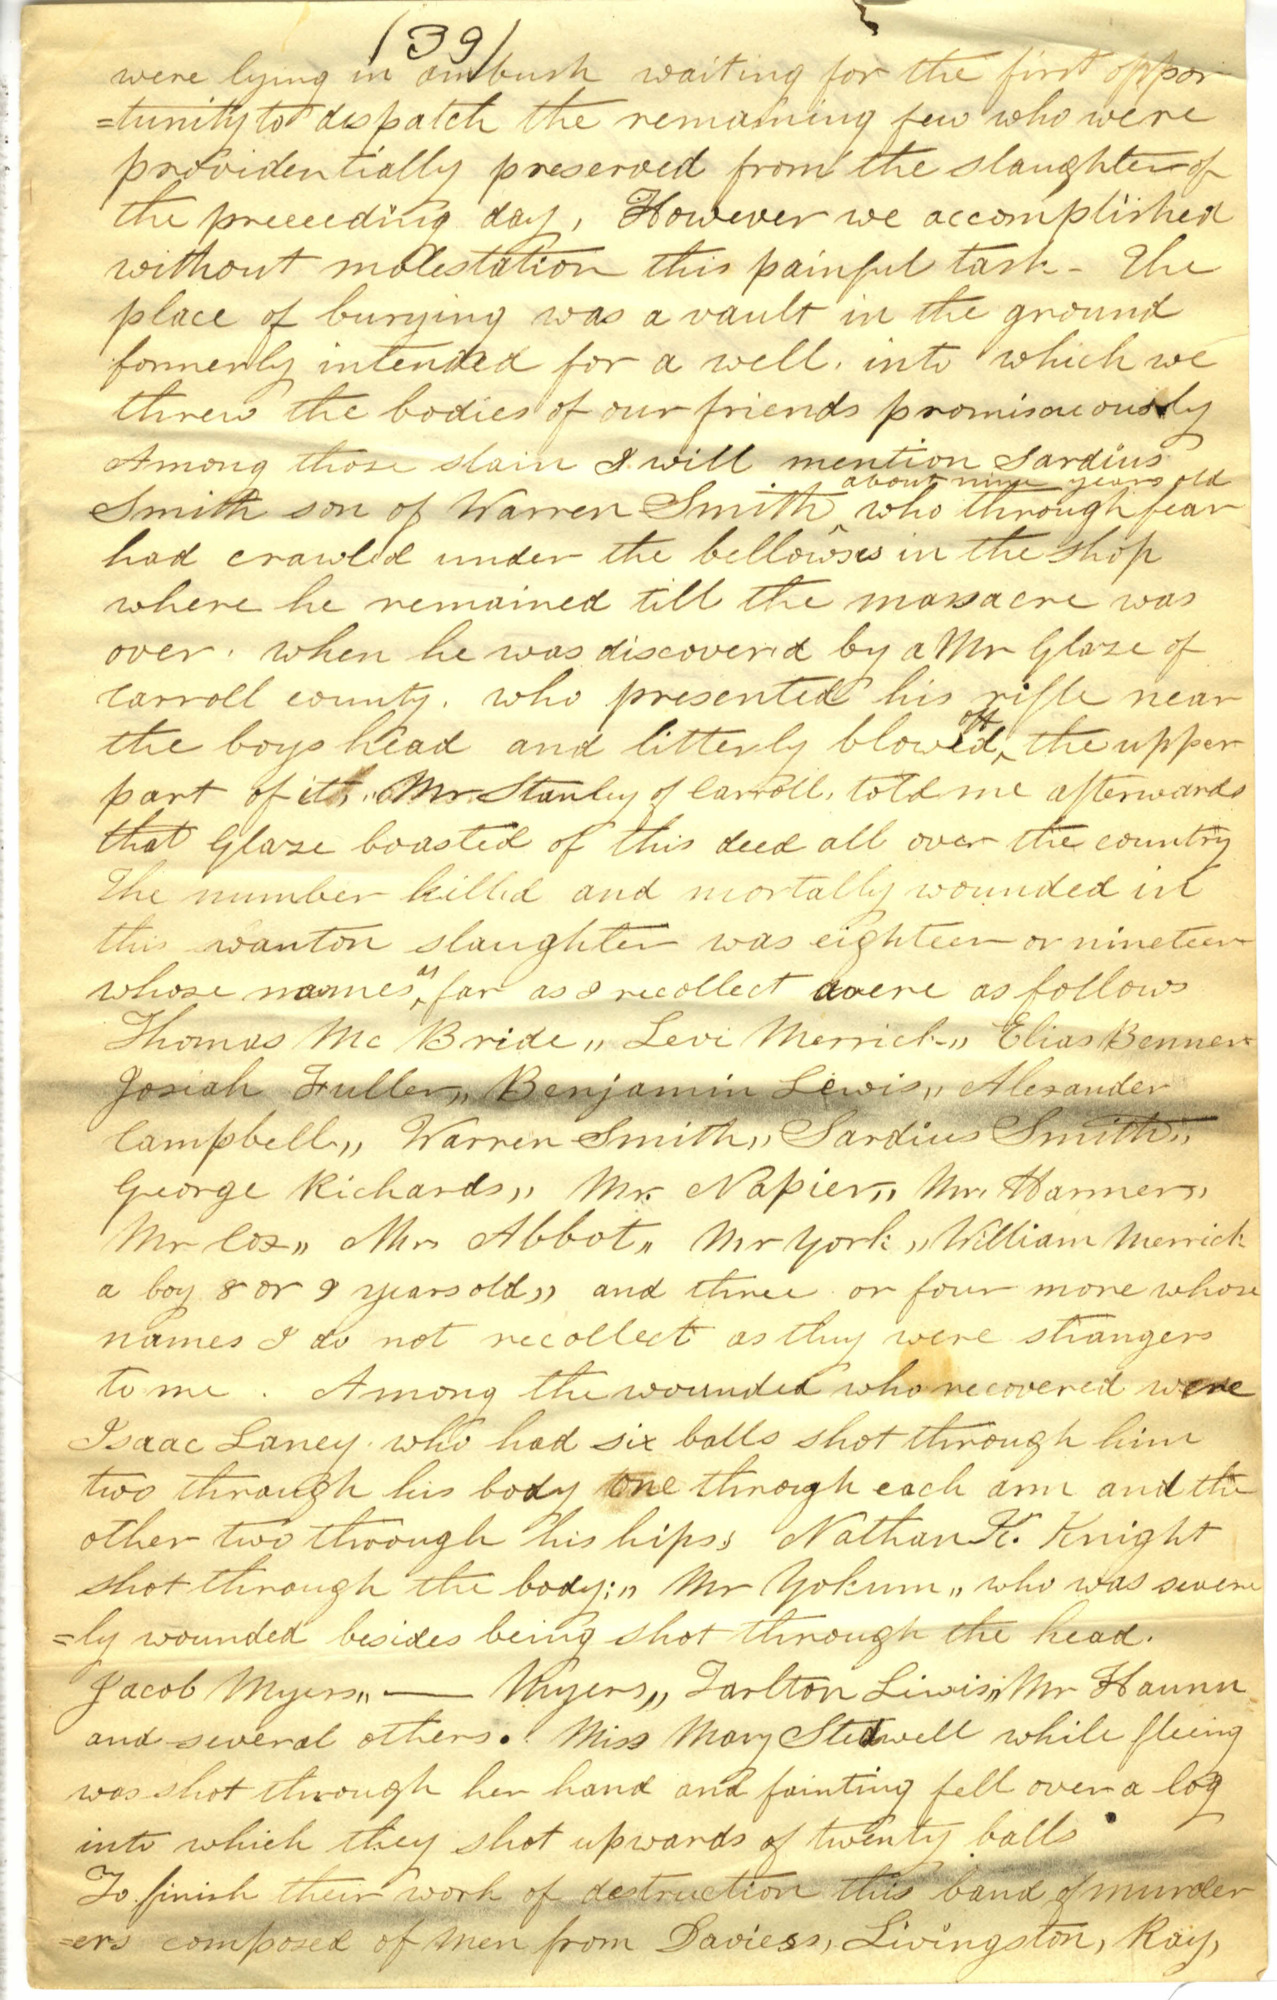 (39)
were lying in ambush waiting for the first oppor
=tunity to dispatch the remaining few who were
providentially preserved from the slaughter of
the preceeding day, However we accomplished
without molestation this painful task - The
place of burying was a vault in the ground
formerly intended for a well. into which we
threw the bodies of our friends promiscuously
Among those slain I will mention Sardius
about nine years old
Smith son of Warren Smith ^ who through fear
had crawled under the bellowses in the shop
where he remained till the massacre was
over. when he was discovered by a Mr Glaze of
Carroll county. who presented his rifle near
off
the boys head and litterly blowed ^ the upper
part of it. Mr. Stanley of Carroll, told me afterwards
that Glaze boasted of this deed all over the country
The number killed and mortally wounded in
this wanton slaughter was eighteen or nineteen
whose names ^ as far as I recollect were as follows
Thomas Mc Bride,, Levi Merrick,, Elias Benner
Josiah Fuller,, Benjamin Lewis,, Alexander
Campbell,, Warren Smith,, Sardius Smith,,
George Richards,, Mr. Napier,, Mr. Harmer,
Mr Cox,, Mr. Abbot,, Mr York,, William Merrick
a boy 8 or 9 years old,, and three or four more whose
names I do not recollect as they were strangers
to me. Among the wounded who recovered were
Isaac Laney. who had six balls shot through him
two through his body one through each arm and the
other two through his hips; Nathan K. Knight
shot through the body;,, Mr Yokum,, who was severe
=ly wounded besides being shot through the head.
Jacob Myers,, — Myers,, Tarlton Liwis,, Mr Haunn
and several others. Miss Mary Stedwell while fleeing
was shot through her hand and fainting fell over a log
into which they shot upwards of twenty balls
To finish their work of destruction this band of murder
=ers composed of men from Daviess, Livingston, Ray,